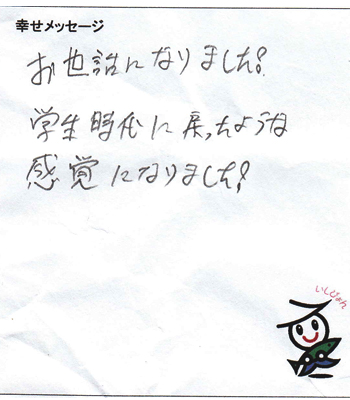 幸せメッセージ
お世話になりました!
学生時代に戻ったような
感覚になりました!
いしぴょん